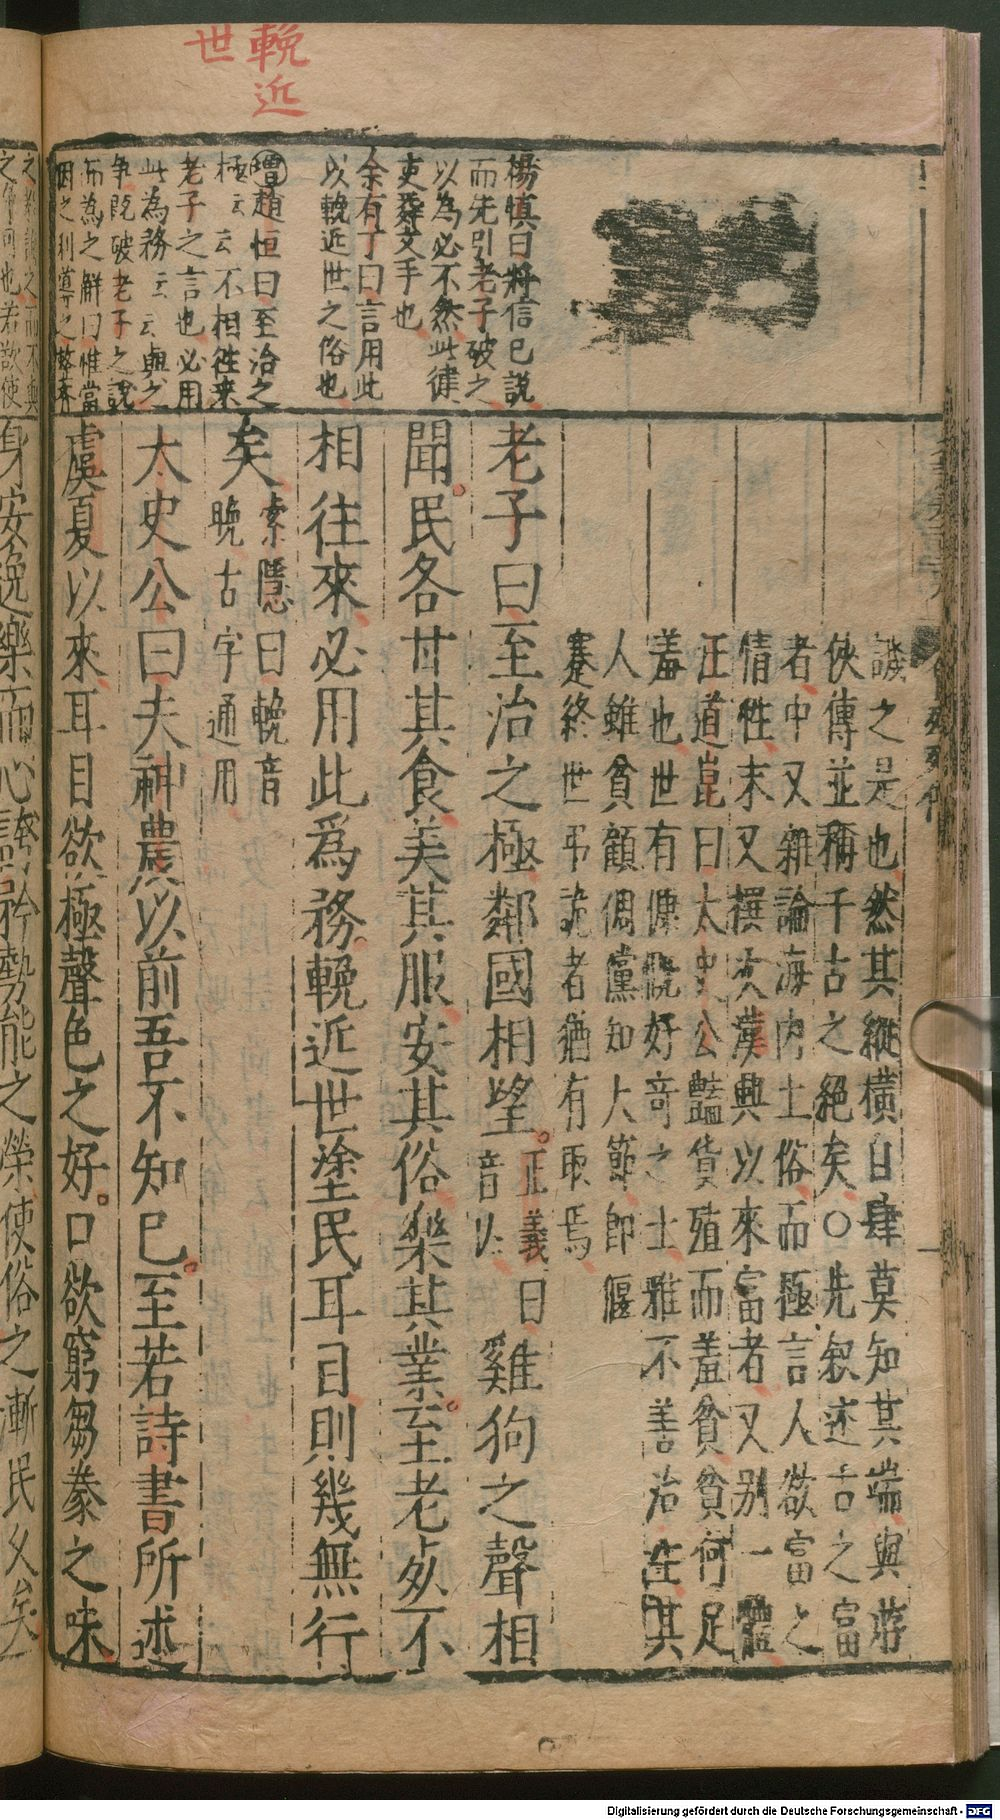 輓近
世
楊慎曰將信己說
而先引老子破之
以為必不然此律
吏舞文手也
余有丁曰言用此
以輓近世之俗也
增趙恒曰至治之
極云云不相往來
老子之言也必用
此為務云云輿之
爭既破老子之說
而為之解曰惟當
因之利導之整齊
譏之是也然其縱橫自肆莫知其端與游
俠傳並稱千古之絕矣○先叙述古之富
者中又雜論海內土俗而極言人欲富之
情性末又撰次漢興以來富者又別一體
汪道崑曰太史公豔貨殖而羞貧貧何足
羞也世有慷慨好奇之士雅不善治生其
人雖貧顧倜儻知大節即偃
蹇終世弔詭者猶有取焉
老子曰至治之極鄰國相望正義曰
音亡雞狗之聲相
聞民各甘其食美其服安其俗樂其業至老死不
相往來必用此爲務輓近世塗民耳目則幾無行
矣索隱曰輓音
晚古字通用
太史公曰夫神農以前吾不知已至若詩書所述
虞夏以來耳目欲極聲色之好口欲窮芻豢之味
之教誨之而不與
之爭可也若欲使
身安逸樂而心誇矜勢能之榮使俗之漸民久矣
Digitalisierung gefördert durch die Deutsche Forschungsgemeinschaft - DFG